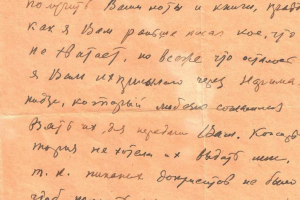 получить Ваши ноты и книги, правда
как я Вам раньше писал кое, что
не хватает, но всё же что осталось
я Вам их присылаю через
который любезно согласился
взять их для передачи Вам. Консерва-
тория не хотела их выдать мне,
т. к. никаких документов не было